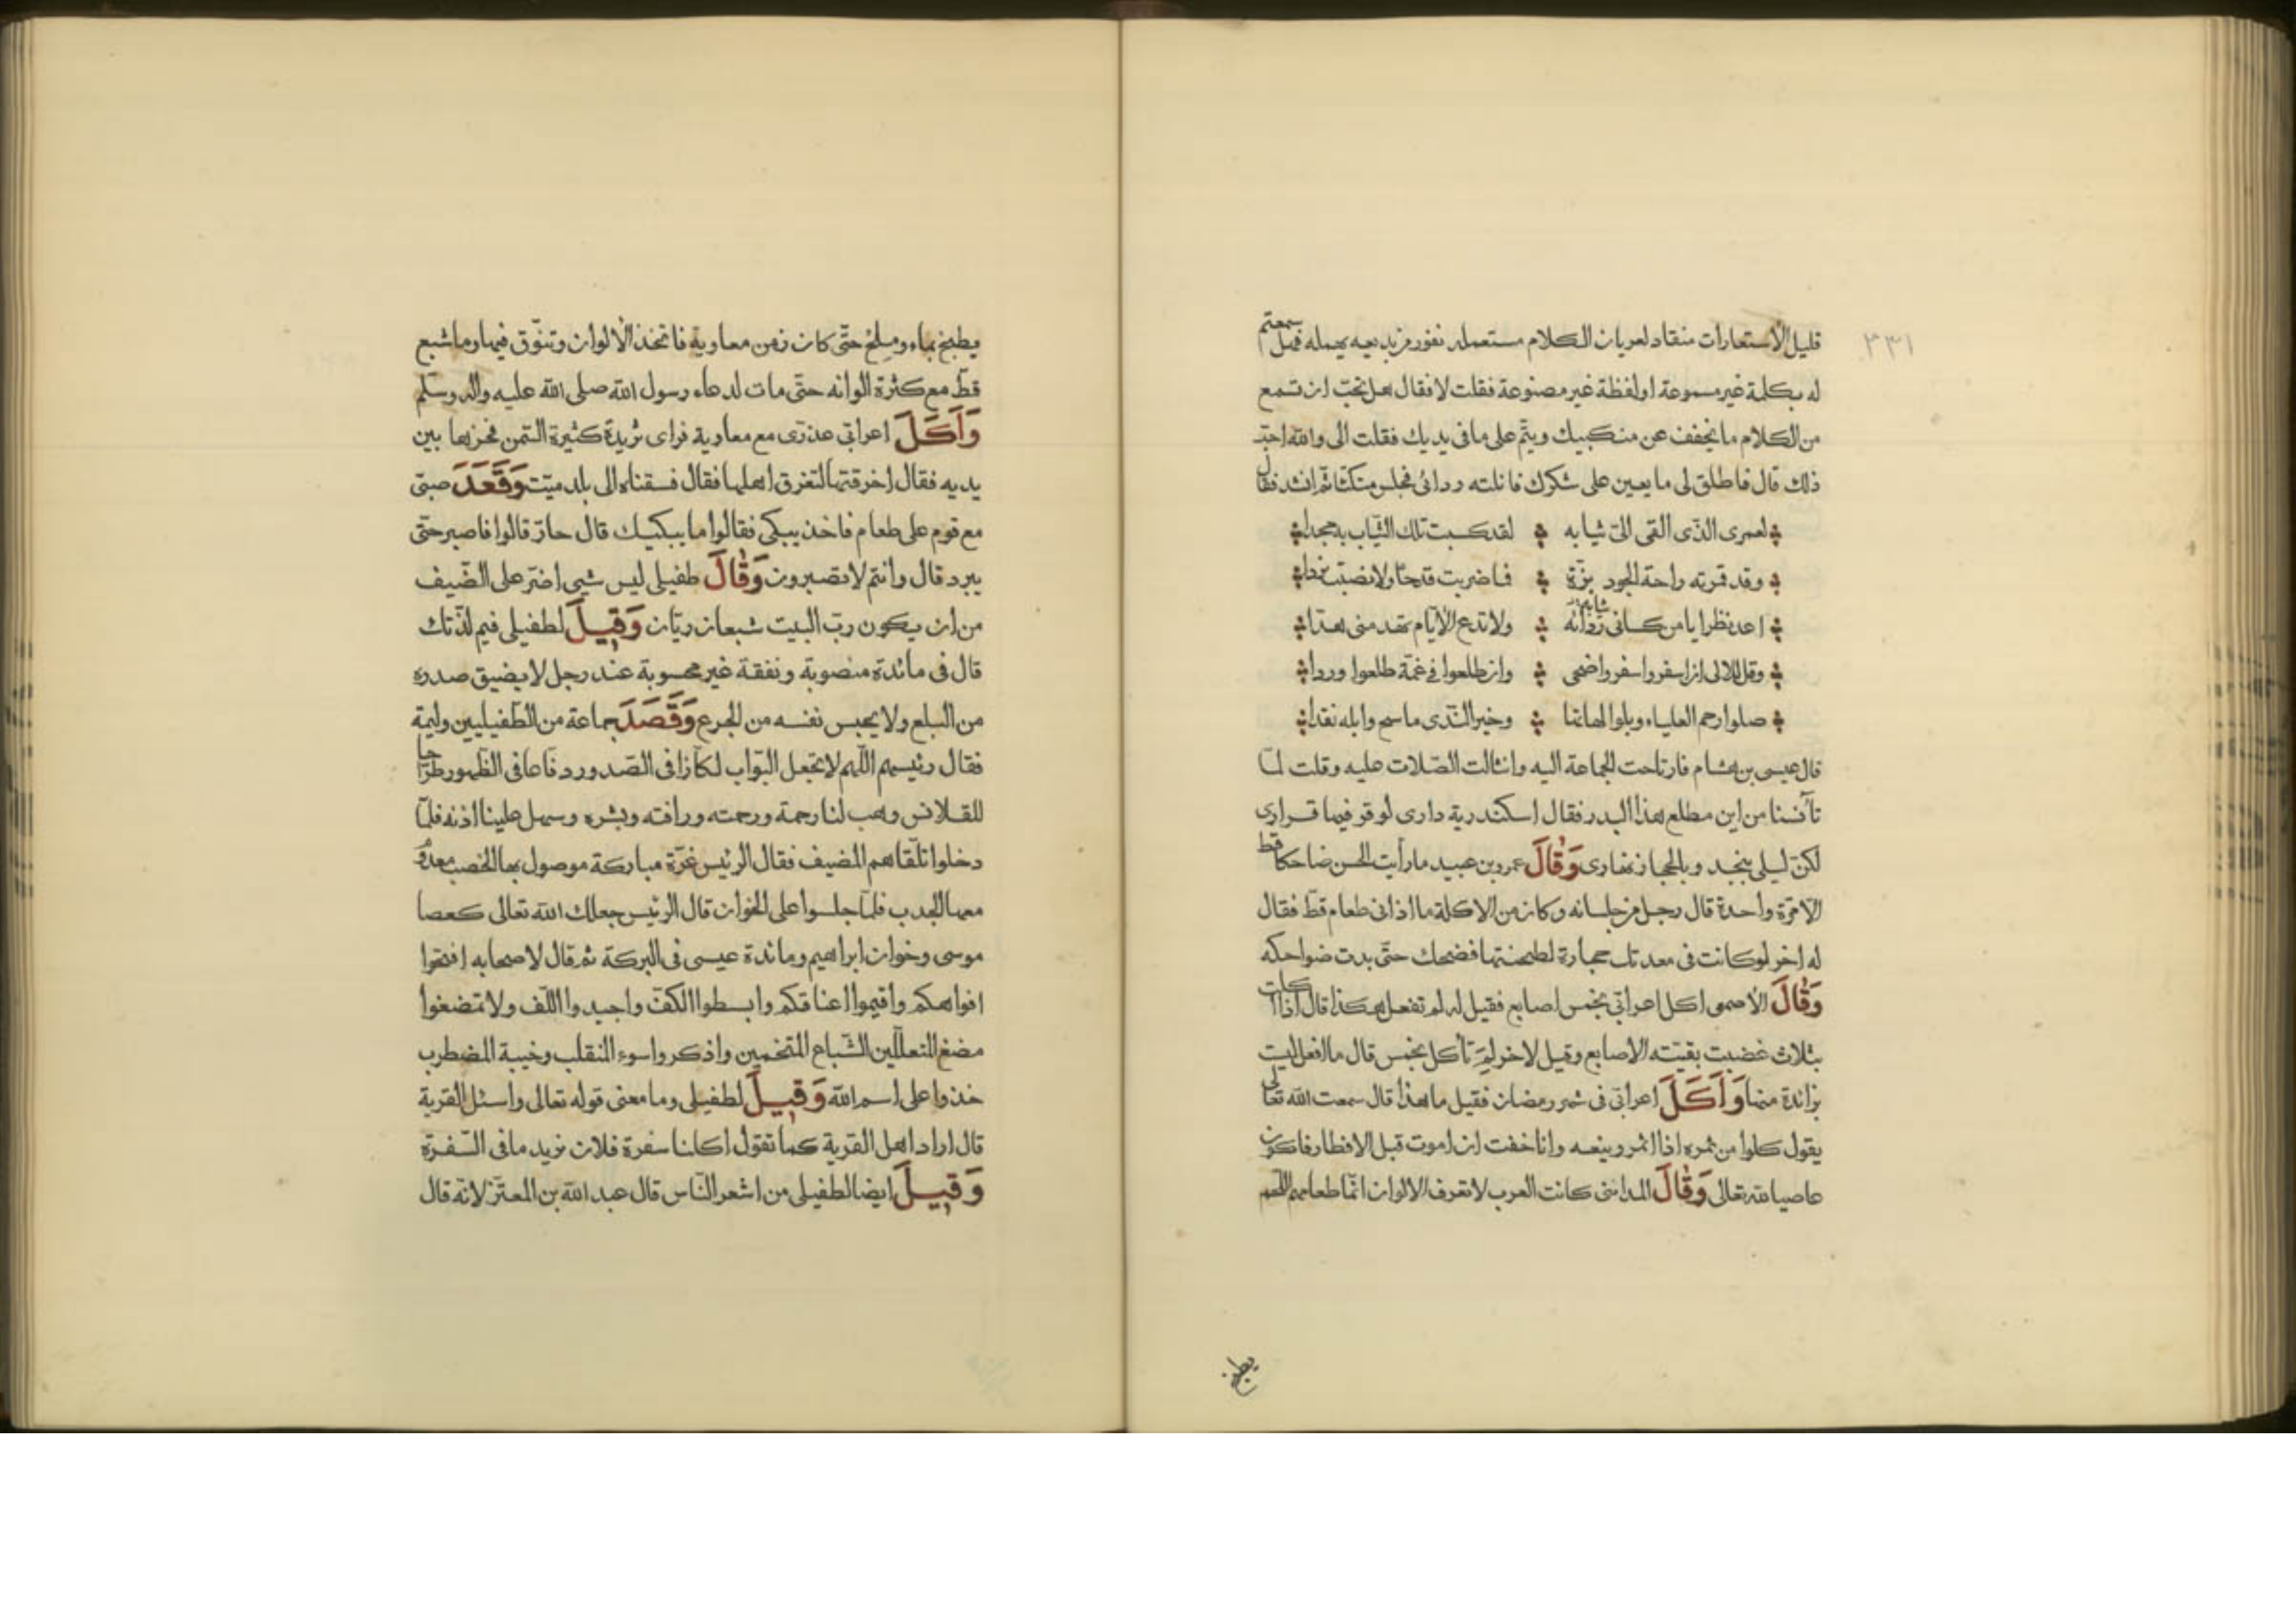 ٣٣١
قليل الاستعارات منقاد لعريان الكلام مستعمله نفور من بديعه يهمله فهل سمعتم
له بكلمة غير مسموعة او لفظة غير مصنوعة فقلت لا فقال هل تحب ان تسمع
من الكلام ما يخفف عن منكبيك وينم على ما فى يديك فقلت اى والله احب
ذلك قال فاطلق لى ما يعين على شكرك فانلته ردائى فجلس متكئا ثم انشد فقال
لعمرى الذى القى الىّ ثيابه لقد كسبت تلك الثياب به مجدا
وقد قمرته راحة الجود بزة فما ضربت قدحا ولا نصبت نردا
اعد نظرا يا من كسانى ثيابه ولا تدع الايام تهدمنى هدا
وقل للالى ان اسفروا اسفروا ضحى وان طلعوا فى غمة طلعوا وردا
صلوا رحم العلياء وبلوا لهاتها وخير الندى ما سح وابله نقدا
قال عيسى بن هشام فارتاحت الجماعة اليه وانثالت الصلات عليه وقلت لما
تآنسنا من اين مطلع هذا البدر فقال اسكندرية دارى لو قر فيها قرارى
لكن ليلى بنجد وبالحجاز نهارى وَقَالَ عمرو بن عبيد ما رأيت الحسن ضاحكا قط
الا مرة واحدة قال رجل من جلسائه وكان من الاكلة ما اذانى طعام قط فقال
له اخر لو كانت فى معدتك حجارة لطحنتها فضحك حتى بدت ضواحكه
وَقَالَ الاصمعى اكل اعرابى بخمس اصابع فقيل له لم تفعل هكذا قال اذا اكلت
بثلاث غضبت بقيته الاصابع وقيل لاخر لم تأكل بخمس قال ما افعل ليست
بزائدة منها وَاَكَلَ اعرابى فى شهر رمضان فقيل ما هذا قال سمعت الله تعالى
يقول كلوا من ثمره اذا اثمر وينعه وانا خفت ان اموت قبل الافطار فاكون
عاصيا لله تعالى وَقَالَ المداينى كانت العرب لا تعرف الالوان انما طعامهم اللحم
يطبخ
يطبخ بماء وملح حتى كان زمن معاوية فاتخذ الالوان وتنوق فيها وما شبع
قط مع كثرة الوانه حتى مات لدعاء رسول الله صلى الله عليه واله وسلم
وَاَكَلَ اعرابى عذرى مع معاوية فراى ثريدة كثيرة السمن فخرها بين
يديه فقال اخرقتها لتغرق اهلها فقال فسقناه الى بلد ميت وَقَعَدَ صبى
مع قوم على طعام فاخذ يبكى فقالوا ما يبكيك قال حار قالوا فاصبر حتى
يبرد قال وانتم لا تصبرون وَقَالَ طفيلى ليس شيى اضر على الضيف
من ان يكون رب البيت شبعان ريان وَقِيلَ لطفيلى فيم لذتك
قال فى مائدة منصوبة ونفقة غير محسوبة عند رجل لا يضيق صدره
من البلع ولا يحبس نفسه من الجرع وَقَصَدَ جماعة من الطفيليين وليمة
فقال رئيسهم اللهم لا تجعل البواب لكازا فى الصدور دفاعا فى الظهور طراحا
للقلانس وهب لنا رحمة ورحمته ورافته وبشره وسهل علينا اذنه فلما
دخلوا تلقاهم المضيف فقال الرئيس غرة مباركة موصول بها الخصب معدوم
معها الجدب فلما جلسوا على الخوان قال الرئيس جعلك الله تعالى كعصا
موسى وخوان ابراهيم ومائدة عيسى فى البركة ثم قال لاصحابه افتحوا
افواهكم واقيموا اعناقكم وابسطوا الكف واجيدوا اللف ولا تمضغوا
مضغ المتعللين الشباع المتخمين واذكروا سوء المنقلب وخيبة المضطرب
خذوا على اسم الله وَقِيلَ لطفيلى وما معنى قوله تعالى واسئل القرية
قال اراد اهل القرية كما تقول اكلنا سفرة فلان نريد ما فى السفرة
وَقِيلَ ايضا لطفيلى من اشعر الناس قال عبد الله بن المعتز لانه قال